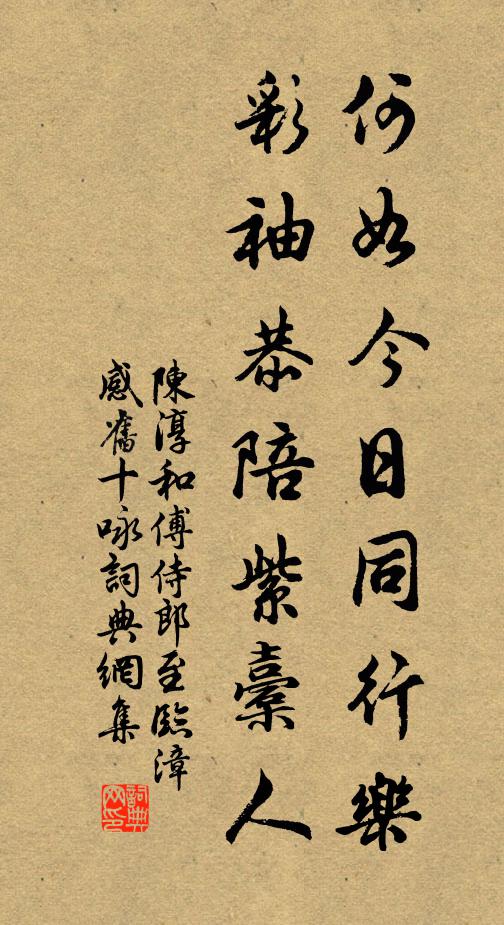 何如今日同行樂
彩袖恭陪紫橐人
陳淳和傅侍郎至臨漳
感舊十咏詞典網集
詞典
网印